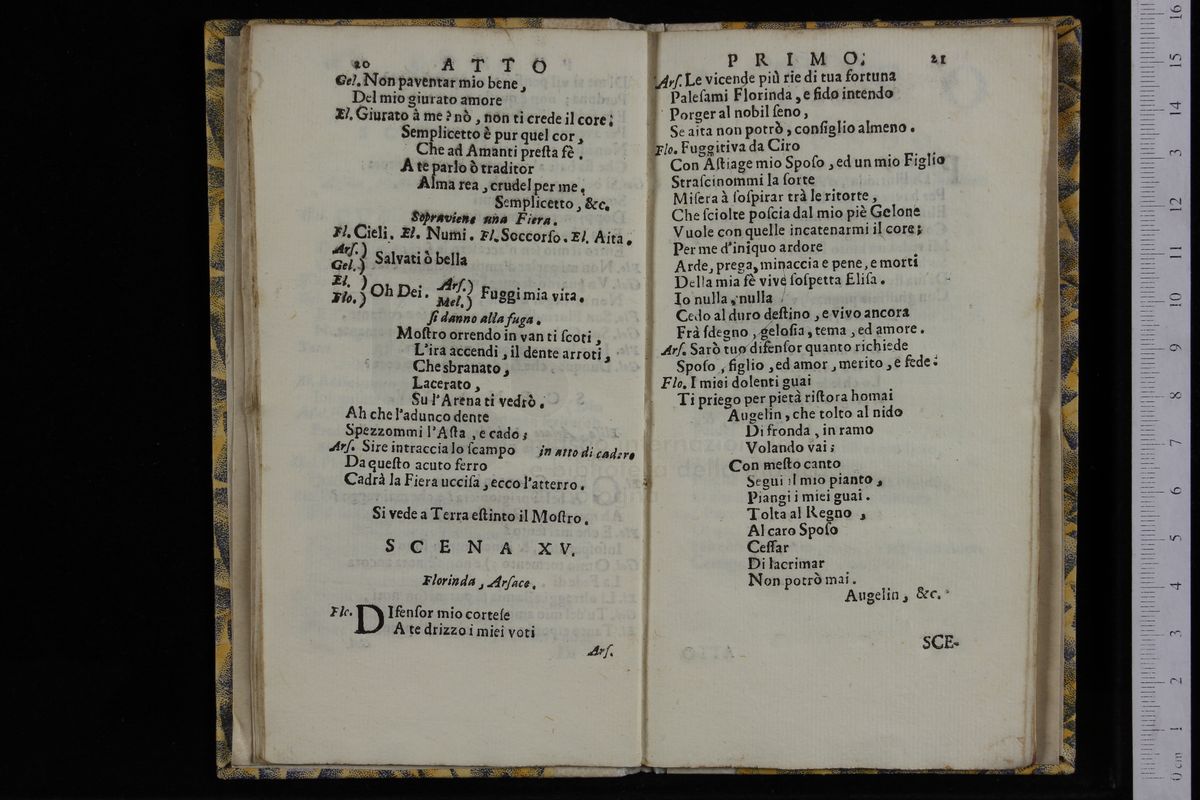 20 ATTO
Gel. Non paventar mio bene,
Del mio giurato amore
El. Giurato à me? nò, non ti crede il core;
Semplicetto è pur quel cor,
Che ad Amanti preſta fè.
A te parlo ò traditor
Alma rea, crudel per me.
Semplicetto, &c.
Sopraviene una Fiera.
Fl. Cieli. El. Numi. Fl. Soccorſo. El. Aita.
Arſ.)
Gel.) Salvati ò bella
El. ) Oh Dei. Arſ.) Fuggi mia vita.
Flo.) Mel.)
ſi danno alla fuga.
Moſtro orrendo in van ti ſcoti,
L'ira accendi, il dente arroti,
Che sbranato,
Lacerato,
Su l'Arena ti vedrò.
Ah che l'adunco dente
Spezzommi l'Aſta, e cado;
Arſ. Sire intraccia lo ſcampo in atto di cadere
Da queſto acuto ferro
Cadrà la Fiera ucciſa, ecco l'atterro.
Si vede a Terra eſtinto il Moſtro.
SCENA XV.
Florinda, Arſace.
Flo. DIfenſor mio corteſe
A te drizzo i miei voti
Arſ.
PRIMO. 21
Arſ. Le vicende più rie di tua fortuna
Paleſami Florinda, e fido intendo
Porger al nobil ſeno,
Se aita non potrò, conſiglio almeno.
Flo. Fuggitiva da Ciro
Con Aſtiage mio Spoſo, ed un mio Figlio
Straſcinommi la ſorte
Miſera à ſoſpirar trà le ritorte,
Che ſciolte poſcia dal mio piè Gelone
Vuole con quelle incatenarmi il core;
Per me d'iniquo ardore
Arde, prega, minaccia e pene, e morti
Della mia fè vive ſoſpetta Eliſa.
Io nulla, nulla
Cedo al duro deſtino, e vivo ancora
Frà ſdegno, geloſia, tema, ed amore.
Arſ. Sarò tuo difenſor quanto richiede
Spoſo, figlio, ed amor, merito, e fede.
Flo. I miei dolenti guai
Ti priego per pietà riſtora homai
Augelin, che tolto al nido
Di fronda, in ramo
Volando vai;
Con meſto canto
Segui il mio pianto,
Piangi i miei guai.
Tolta al Regno,
Al caro Spoſo
Ceſſar
Di lacrimar
Non potrò mai.
Augelin, &c.
SCE-